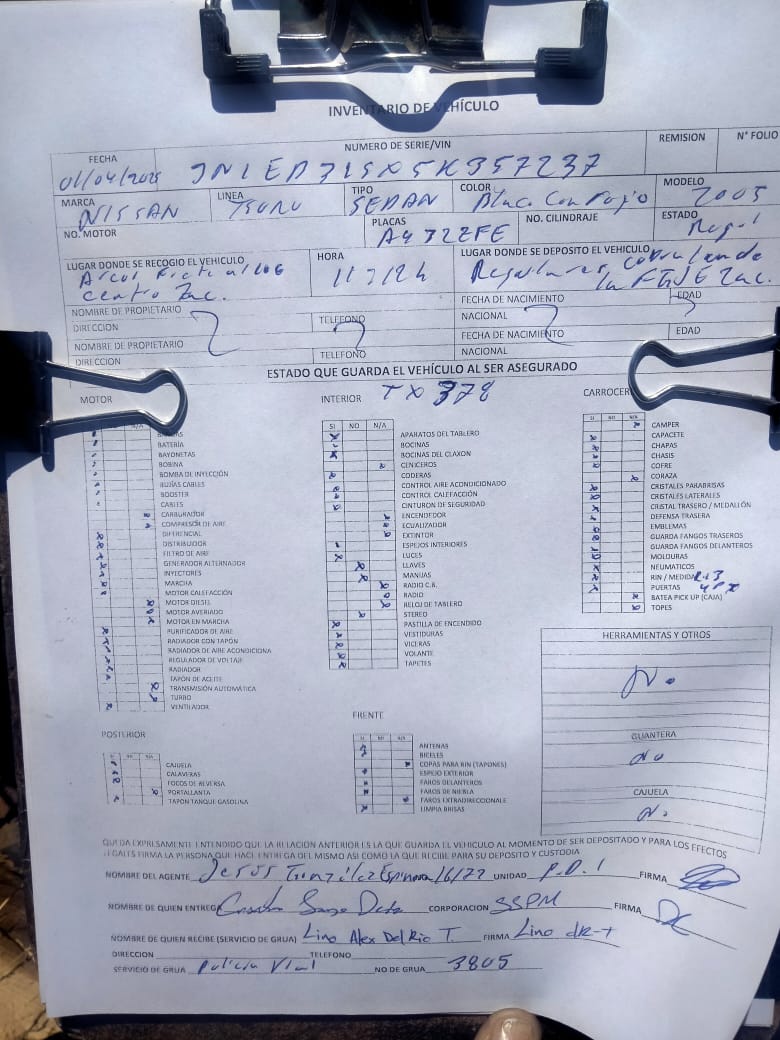 INVENTARIO DE VEHÍCULO
FECHA NUMERO DE SERIE/VIN REMISION N° FOLIO
01/04/2025 3N1EB31SX5K357237
MARCA LINEA TIPO COLOR MODELO
NISSAN TSURU SEDAN Blaco Con Rojo 2005
NO. MOTOR PLACAS NO. CILINDRAJE ESTADO
A4322FE
LUGAR DONDE SE RECOGIO EL VEHICULO HORA LUGAR DONDE SE DEPOSITO EL VEHICULO
Centro Zac. la FGJE Zac.
NOMBRE DE PROPIETARIO FECHA DE NACIMIENTO EDAD
DIRECCION TELEFONO NACIONAL
NOMBRE DE PROPIETARIO FECHA DE NACIMIENTO EDAD
DIRECCION TELEFONO NACIONAL
ESTADO QUE GUARDA EL VEHÍCULO AL SER ASEGURADO
TX 378
MOTOR
BATERÍA
BAYONETAS
BOBINA
BOMBA DE INYECCIÓN
BUJÍAS CABLES
BOOSTER
CABLES
CARBURADOR
COMPRESOR DE AIRE
DIFERENCIAL
DISTRIBUIDOR
FILTRO DE AIRE
GENERADOR ALTERNADOR
INYECTORES
MARCHA
MOTOR CALEFACCIÓN
MOTOR DIESEL
MOTOR AVERIADO
MOTOR EN MARCHA
PURIFICADOR DE AIRE
RADIADOR CON TAPÓN
RADIADOR DE AIRE ACONDICIONA
REGULADOR DE VOLTAJE
RADIADOR
TAPÓN DE ACEITE
TRANSMISIÓN AUTOMÁTICA
TURBO
VENTILADOR
INTERIOR
SI NO N/A
APARATOS DEL TABLERO
BOCINAS
BOCINAS DEL CLAXON
CENICEROS
CODERAS
CONTROL AIRE ACONDICIONADO
CONTROL CALEFACCIÓN
CINTURON DE SEGURIDAD
ENCENDEDOR
ECUALIZADOR
EXTINTOR
ESPEJOS INTERIORES
LUCES
LLAVES
MANIJAS
RADIO C.B.
RADIO
RELOJ DE TABLERO
STEREO
PASTILLA DE ENCENDIDO
VESTIDURAS
VICERAS
VOLANTE
TAPETES
CARROCER
SI NO N/A
CAMPER
CAPACETE
CHAPAS
CHASIS
COFRE
CORAZA
CRISTALES PARABRISAS
CRISTALES LATERALES
CRISTAL TRASERO / MEDALLÓN
DEFENSA TRASERA
EMBLEMAS
GUARDA FANGOS TRASEROS
GUARDA FANGOS DELANTEROS
MOLDURAS
NEUMATICOS
RIN / MEDIDA R-13
PUERTAS
BATEA PICK UP (CAJA)
TOPES
HERRAMIENTAS Y OTROS
No
GUANTERA
No
CAJUELA
No
POSTERIOR
SI NO N/A
CAJUELA
CALAVERAS
FOCOS DE REVERSA
PORTALLANTA
TAPÓN TANQUE GASOLINA
FRENTE
SI NO N/A
ANTENAS
BICELES
COPAS PARA RIN (TAPONES)
ESPEJO EXTERIOR
FAROS DELANTEROS
FAROS DE NIEBLA
FAROS EXTRADIRECCIONALE
LIMPIA BRISAS
QUEDA EXPRESAMENTE ENTENDIDO QUE LA RELACIÓN ANTERIOR ES LA QUE GUARDA EL VEHICULO AL MOMENTO DE SER DEPOSITADO Y PARA LOS EFECTOS
LEGALES FIRMA LA PERSONA QUE HACE ENTREGA DEL MISMO ASI COMO LA QUE RECIBE PARA SU DEPOSITO Y CUSTODIA
NOMBRE DEL AGENTE Jesús González Espinoza UNIDAD P.D.1 FIRMA
NOMBRE DE QUIEN ENTREGA CORPORACION SSPM FIRMA
NOMBRE DE QUIEN RECIBE (SERVICIO DE GRUA) Lino Alex Del Rio T. FIRMA Lino dR-T
DIRECCION TELEFONO
SERVICIO DE GRUA Policia Vial NO DE GRUA 3805